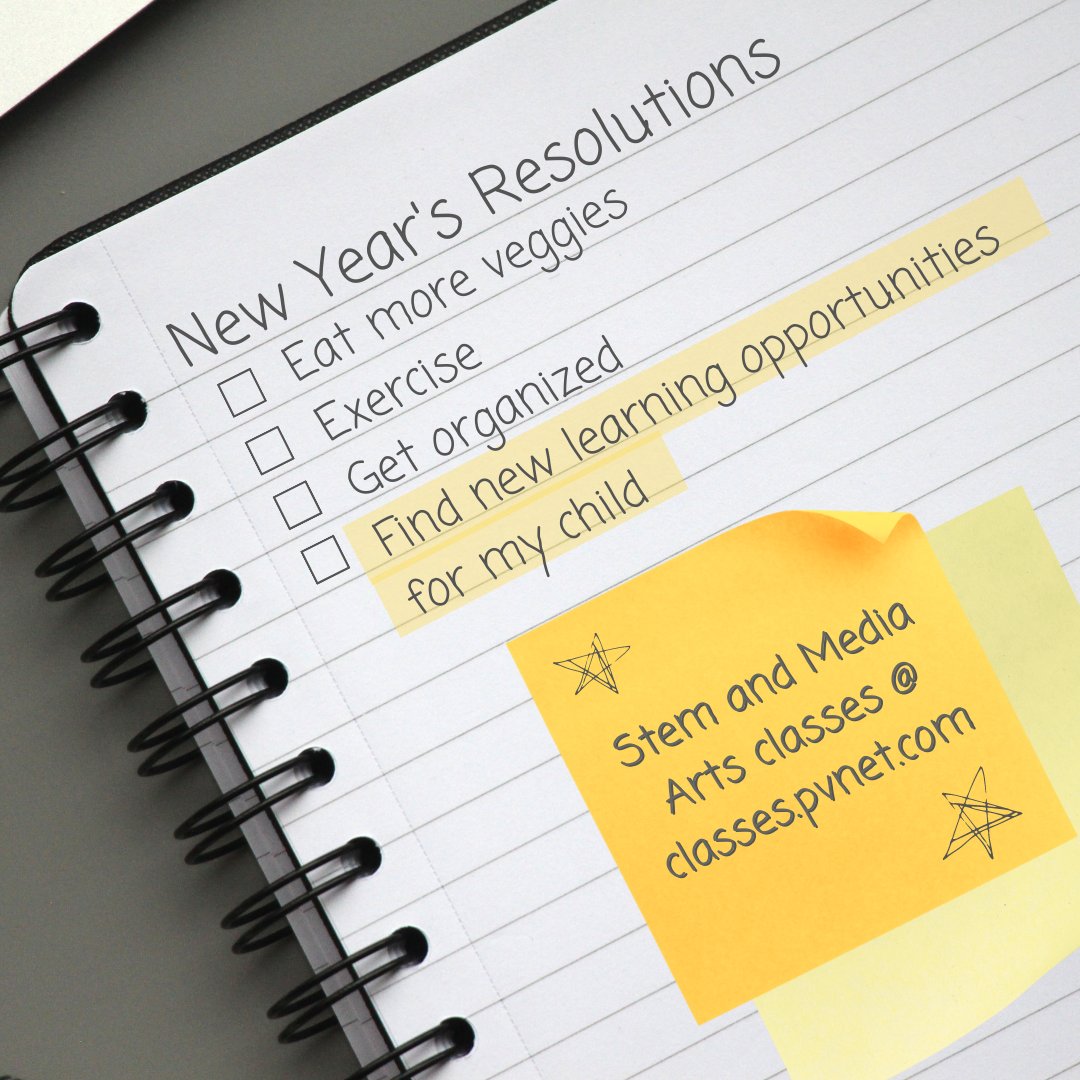 New Year's Resolutions
Eat more veggies
Exercise
Get organized
Find new learning opportunities
for my child
Stem and Media
Arts classes @
classes.pvnet.com